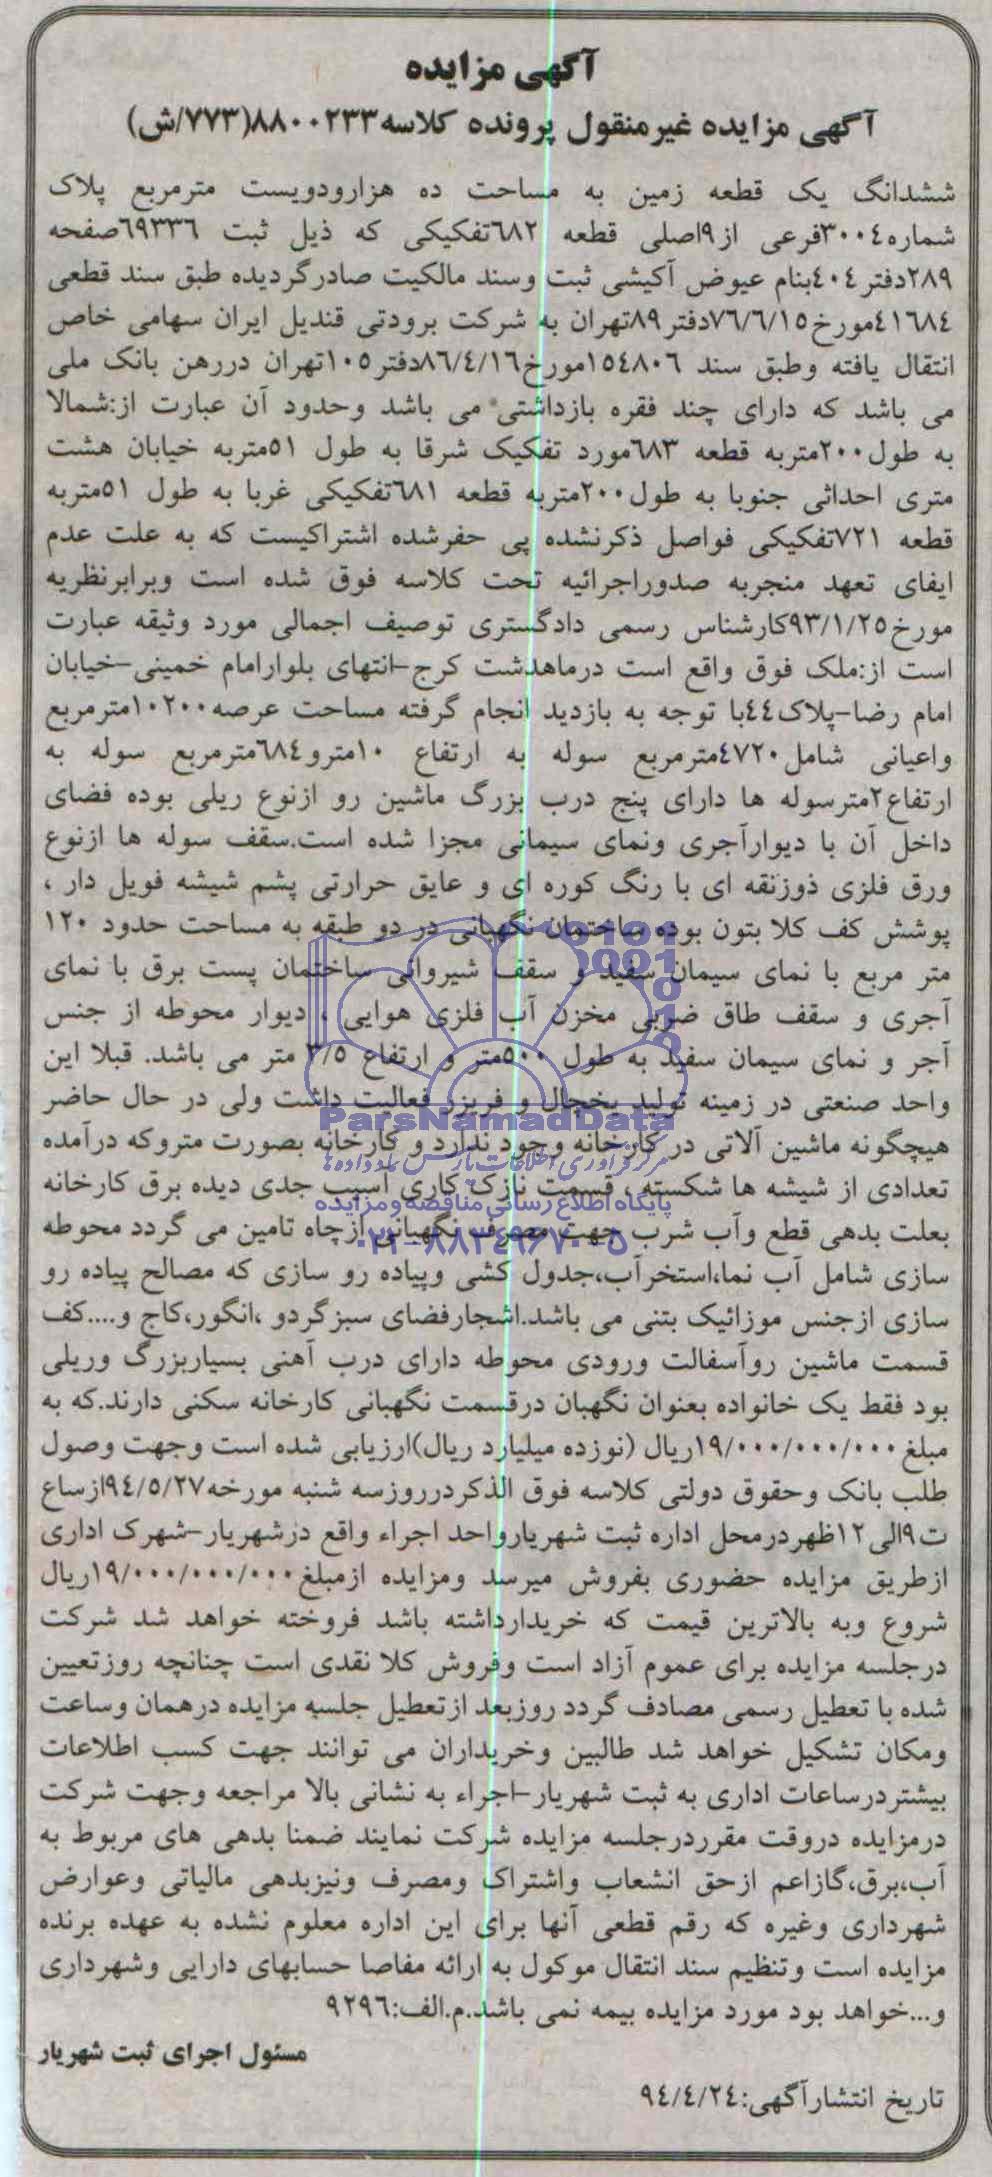 آگهی مزایده
آگهی مزایده غیرمنقول پرونده کلاسه۸۸۰۰۲۳۳(۷۷۳/ش)
ششدانگ یک قطعه زمین به مساحت ده هزارودویست مترمربع پلاک
شماره۳۰۰٤فرعی از۹اصلی قطعه ٦۸۲تفکیکی که ذیل ثبت ٦۹۳۳٦صفحه
۲۸۹دفتر٤۰٤بنام عیوض آکیشی ثبت وسند مالکیت صادرگردیده طبق سند قطعی
٤۱٦۸٤مورخ۷٦/٦/۱۵دفتر۸۹تهران به شرکت برودتی قندیل ایران سهامی خاص
انتقال یافته وطبق سند ۱۵٤۸۰٦مورخ۸٦/٤/۱٦دفتر۱۰۵تهران دررهن بانک ملی
می باشد که دارای چند فقره بازداشتی می باشد وحدود آن عبارت از:شمالا
به طول۲۰۰متربه قطعه ٦۸۳مورد تفکیک شرقا به طول ۵۱متربه خیابان هشت
متری احداثی جنوبا به طول۲۰۰متربه قطعه ٦۸۱تفکیکی غربا به طول ۵۱متربه
قطعه ۷۲۱تفکیکی فواصل ذکرنشده پی حفرشده اشتراکیست که به علت عدم
ایفای تعهد منجربه صدوراجرائیه تحت کلاسه فوق شده است وبرابرنظریه
مورخ۹۳/۱/۲۵کارشناس رسمی دادگستری توصیف اجمالی مورد وثیقه عبارت
است از:ملک فوق واقع است درماهدشت کرج-انتهای بلوارامام خمینی-خیابان
امام رضا-پلاک٤٤با توجه به بازدید انجام گرفته مساحت عرصه۱۰۲۰۰مترمربع
واعیانی شامل٤۷۲۰مترمربع سوله به ارتفاع ۱۰مترو٦۸٤مترمربع سوله به
ارتفاع۲مترسوله ها دارای پنج درب بزرگ ماشین رو ازنوع ریلی بوده فضای
داخل آن با دیوارآجری ونمای سیمانی مجزا شده است.سقف سوله ها ازنوع
ورق فلزی ذوزنقه ای با رنگ کوره ای و عایق حرارتی پشم شیشه فویل دار ،
پوشش کف کلا بتون بوده ساختمان نگهبانی در دو طبقه به مساحت حدود ۱۲۰
متر مربع با نمای سیمان سفید و سقف شیروانی ساختمان پست برق با نمای
آجری و سقف طاق ضربی مخزن آب فلزی هوایی ، دیوار محوطه از جنس
آجر و نمای سیمان سفید به طول ۵۰۰متر و ارتفاع ۳/۵ متر می باشد. قبلا این
واحد صنعتی در زمینه تولید یخچال و فریزر فعالیت داشت ولی در حال حاضر
ParsNamadData
هیچگونه ماشین آلاتی در کارخانه وجود ندارد و کارخانه بصورت متروکه درآمده
مرکز فرآوری اطلاعات پارس نماد داده ها
تعدادی از شیشه ها شکسته ، قسمت نازک کاری آسیب جدی دیده برق کارخانه
پایگاه اطلاع رسانی مناقصه و مزایده
بعلت بدهی قطع وآب شرب جهت مصرف نگهبانی ازچاه تامین می گردد محوطه
۰۲۱-۸۸۳٤۹٦۷۰-۵
سازی شامل آب نما،استخرآب،جدول کشی وپیاده رو سازی که مصالح پیاده رو
سازی ازجنس موزائیک بتنی می باشد.اشجارفضای سبزگردو ،انگور،کاج و....کف
قسمت ماشین روآسفالت ورودی محوطه دارای درب آهنی بسیاربزرگ وریلی
بود فقط یک خانواده بعنوان نگهبان درقسمت نگهبانی کارخانه سکنی دارند.که به
مبلغ ۱۹/۰۰۰/۰۰۰/۰۰۰ریال (نوزده میلیارد ریال)ارزیابی شده است وجهت وصول
طلب بانک وحقوق دولتی کلاسه فوق الذکردرروزسه شنبه مورخه۹٤/۵/۲۷ازساع
ت۹الی۱۲ظهردرمحل اداره ثبت شهریارواحد اجراء واقع درشهریار-شهرک اداری
ازطریق مزایده حضوری بفروش میرسد ومزایده ازمبلغ۱۹/۰۰۰/۰۰۰/۰۰۰ریال
شروع وبه بالاترین قیمت که خریدارداشته باشد فروخته خواهد شد شرکت
درجلسه مزایده برای عموم آزاد است وفروش کلا نقدی است چنانچه روزتعیین
شده با تعطیل رسمی مصادف گردد روزبعد ازتعطیل جلسه مزایده درهمان وساعت
ومکان تشکیل خواهد شد طالبین وخریداران می توانند جهت کسب اطلاعات
بیشتردرساعات اداری به ثبت شهریار-اجراء به نشانی بالا مراجعه وجهت شرکت
درمزایده دروقت مقرردرجلسه مزایده شرکت نمایند ضمنا بدهی های مربوط به
آب،برق،گازاعم ازحق انشعاب واشتراک ومصرف ونیزبدهی مالیاتی وعوارض
شهرداری وغیره که رقم قطعی آنها برای این اداره معلوم نشده به عهده برنده
مزایده است وتنظیم سند انتقال موکول به ارائه مفاصا حسابهای دارایی وشهرداری
و...خواهد بود مورد مزایده بیمه نمی باشد.م.الف:۹۲۹٦
مسئول اجرای ثبت شهریار
تاریخ انتشارآگهی:۹٤/٤/۲٤